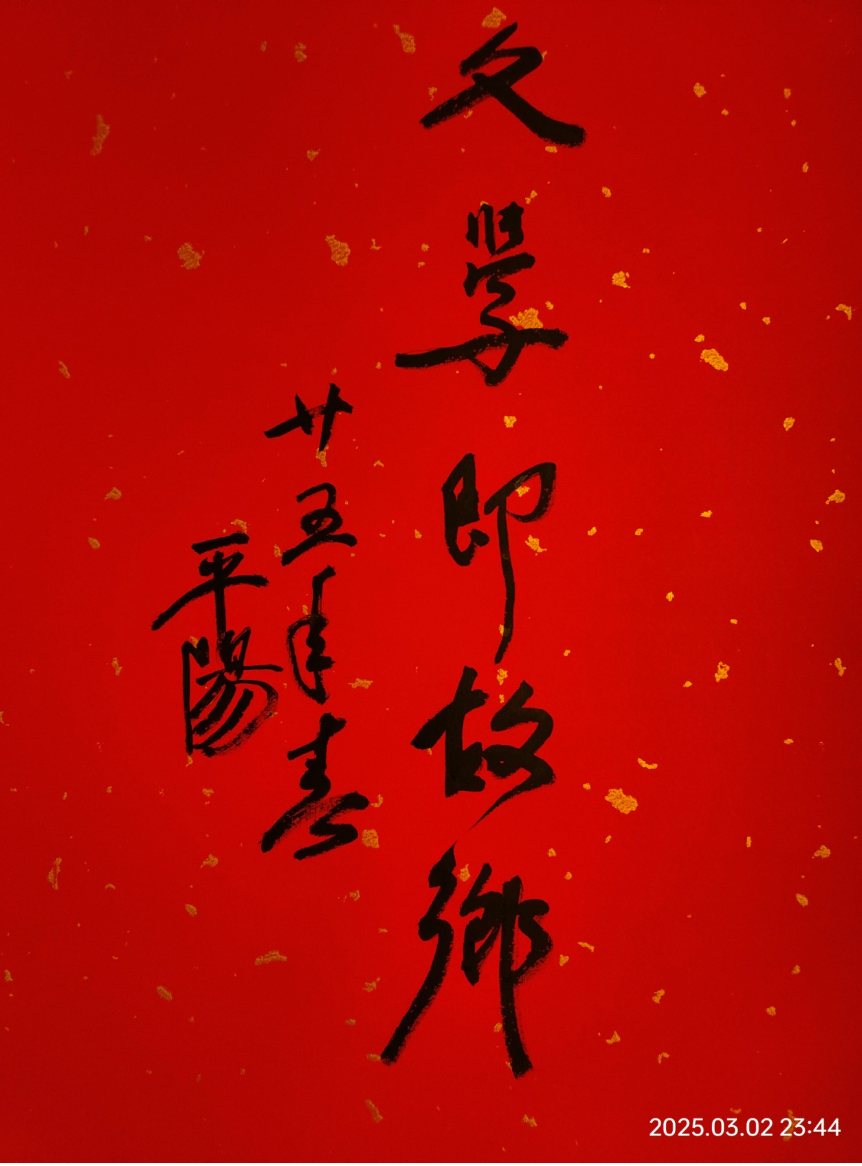 文學即故鄉
廿五年春
平陽
2025.03.02 23:44